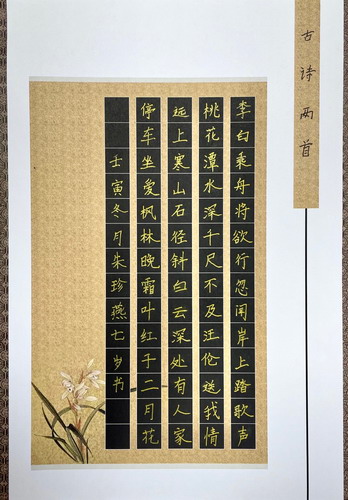 古诗两首
李白乘舟将欲行忽闻岸上踏歌声
桃花潭水深千尺不及汪伦送我情
远上寒山石径斜白云深处有人家
停车坐爱枫林晚霜叶红于二月花
壬寅冬月朱珍燕七岁书